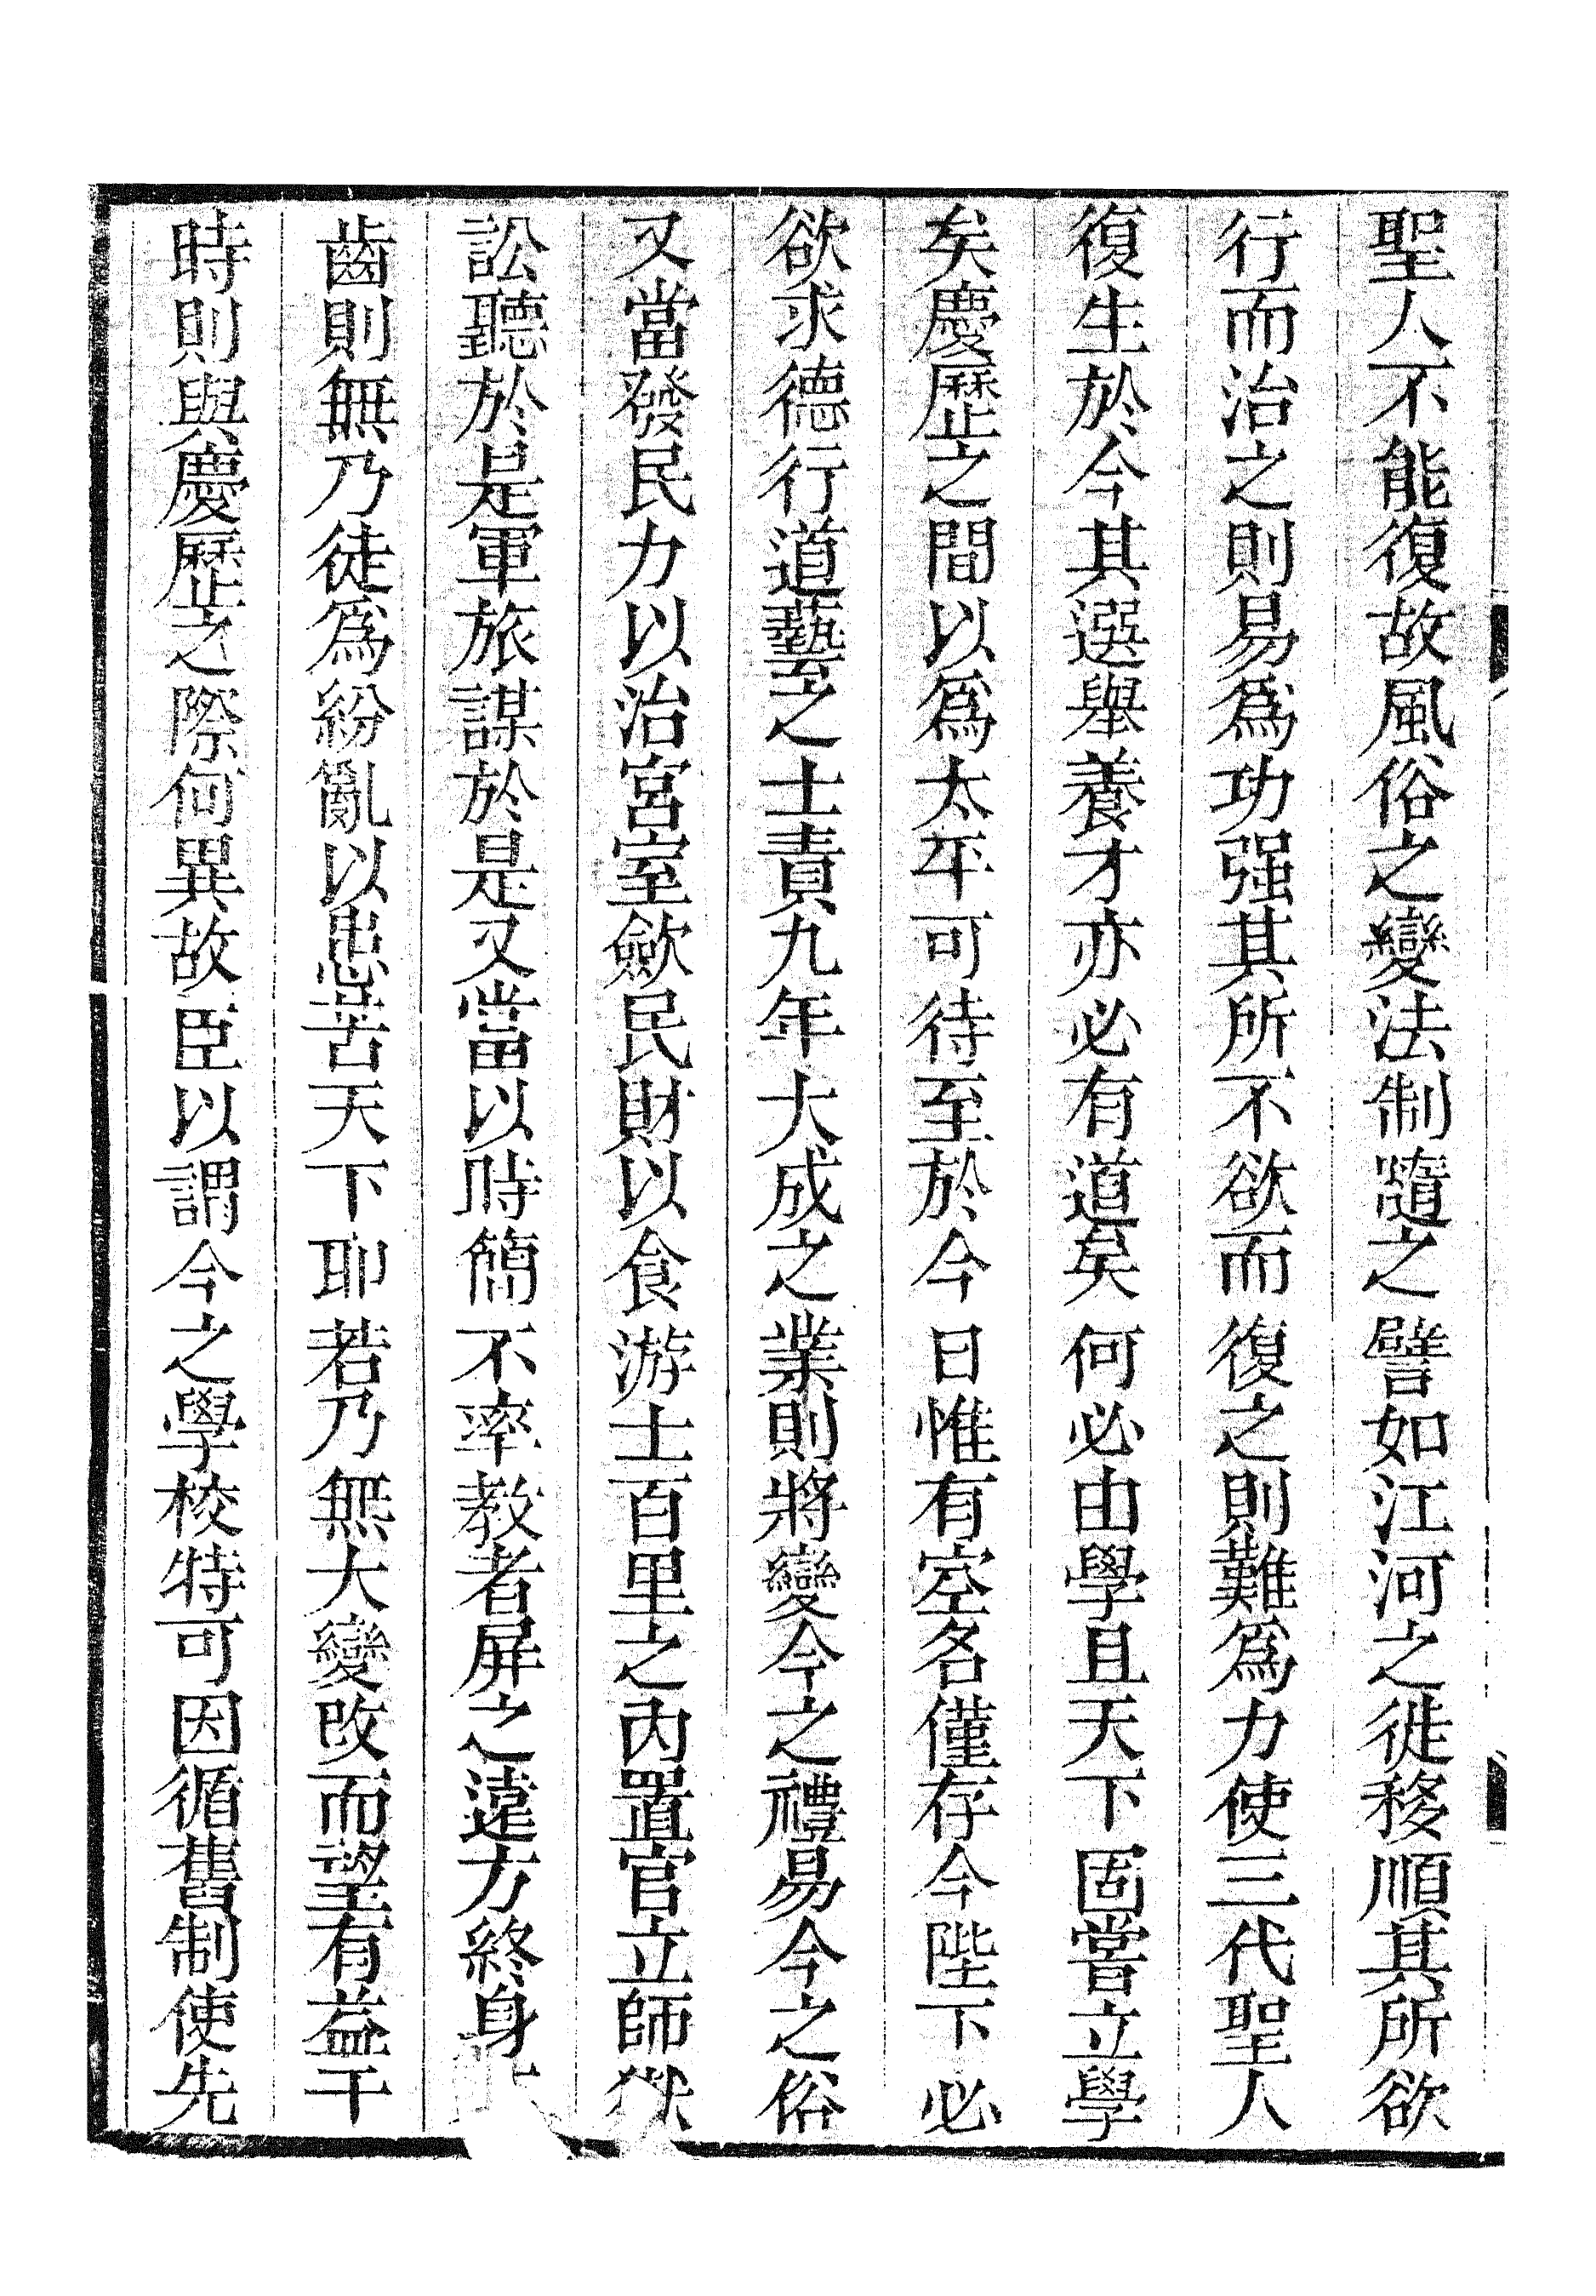 聖人不能復故風俗之變法制隨之譬如江河之徙移順其所欲
行而治之則易爲功强其所不欲而復之則難爲力使三代聖人
復生於今其選舉養才亦必有道矣何必由學且天下固嘗立學
矣慶歷之間以爲太平可待至於今日惟有空名僅存今陛下必
欲求德行道藝之士責九年大成之業則將變今之禮易今之俗
又當發民力以治宮室歛民財以食游士百里之內置官立師獄
訟聽於是軍旅謀於是又當以時簡不率教者屏之遠方終身
齒則無乃徒爲紛亂以患苦天下耶若乃無大變改而望有益于
時則與慶歷之際何異故臣以謂今之學校特可因循舊制使先